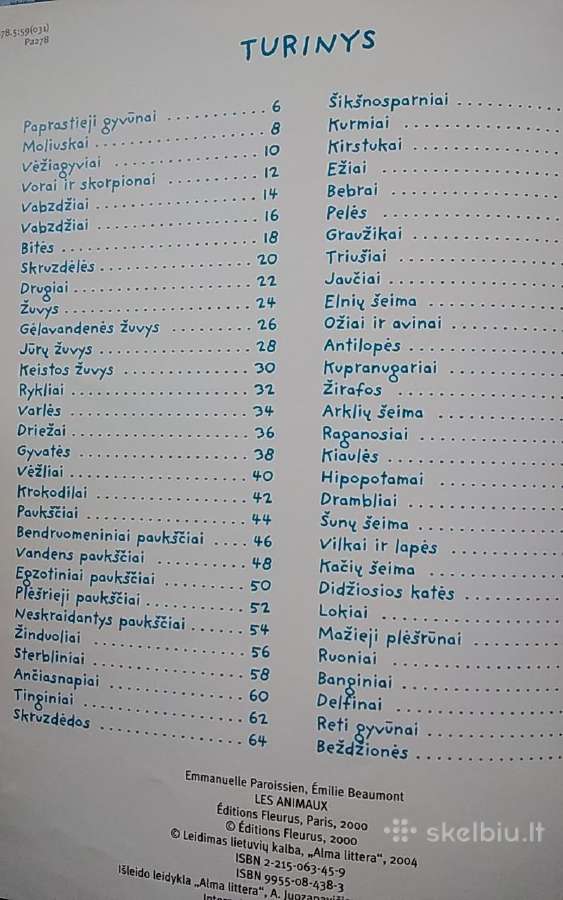 78.5:59(031)
Pa278
TURINYS
Paprastieji gyvūnai ........... 6
Moliuskai ........... 8
Vėžiagyviai ........... 10
Vorai ir skorpionai ........... 12
Vabzdžiai ........... 14
Vabzdžiai ........... 16
Bitės ........... 18
Skruzdėlės ........... 20
Drugiai ........... 22
Žuvys ........... 24
Gėlavandenės žuvys ........... 26
Jūrų žuvys ........... 28
Keistos žuvys ........... 30
Rykliai ........... 32
Varlės ........... 34
Driežai ........... 36
Gyvatės ........... 38
Vėžliai ........... 40
Krokodilai ........... 42
Paukščiai ........... 44
Bendruomeniniai paukščiai ........... 46
Vandens paukščiai ........... 48
Egzotiniai paukščiai ........... 50
Plėšrieji paukščiai ........... 52
Neskraidantys paukščiai ........... 54
Žinduoliai ........... 56
Sterbliniai ........... 58
Ančiasnapiai ........... 60
Tinginiai ........... 62
Skruzdėdos ........... 64
Šikšnosparniai ...........
Kurmiai ...........
Kirstukai ...........
Ežiai ...........
Bebrai ...........
Pelės ...........
Graužikai ...........
Triušiai ...........
Jaučiai ...........
Elnių šeima ...........
Ožiai ir avinai ...........
Antilopės ...........
Kupranugariai ...........
Žirafos ...........
Arklių šeima ...........
Raganosiai ...........
Kiaulės ...........
Hipopotamai ...........
Drambliai ...........
Šunų šeima ...........
Vilkai ir lapės ...........
Kačių šeima ...........
Didžiosios katės ...........
Lokiai ...........
Mažieji plėšrūnai ...........
Ruoniai ...........
Banginiai ...........
Delfinai ...........
Reti gyvūnai ...........
Beždžionės ...........
Emmanuelle Paroissien, Émilie Beaumont
LES ANIMAUX
Éditions Fleurus, Paris, 2000
© Éditions Fleurus, 2000
© Leidimas lietuvių kalba, „Alma littera", 2004
ISBN 2-215-063-45-9
ISBN 9955-08-438-3
Išleido leidykla „Alma littera", A. Juozapavičiaus
skelbiu.lt